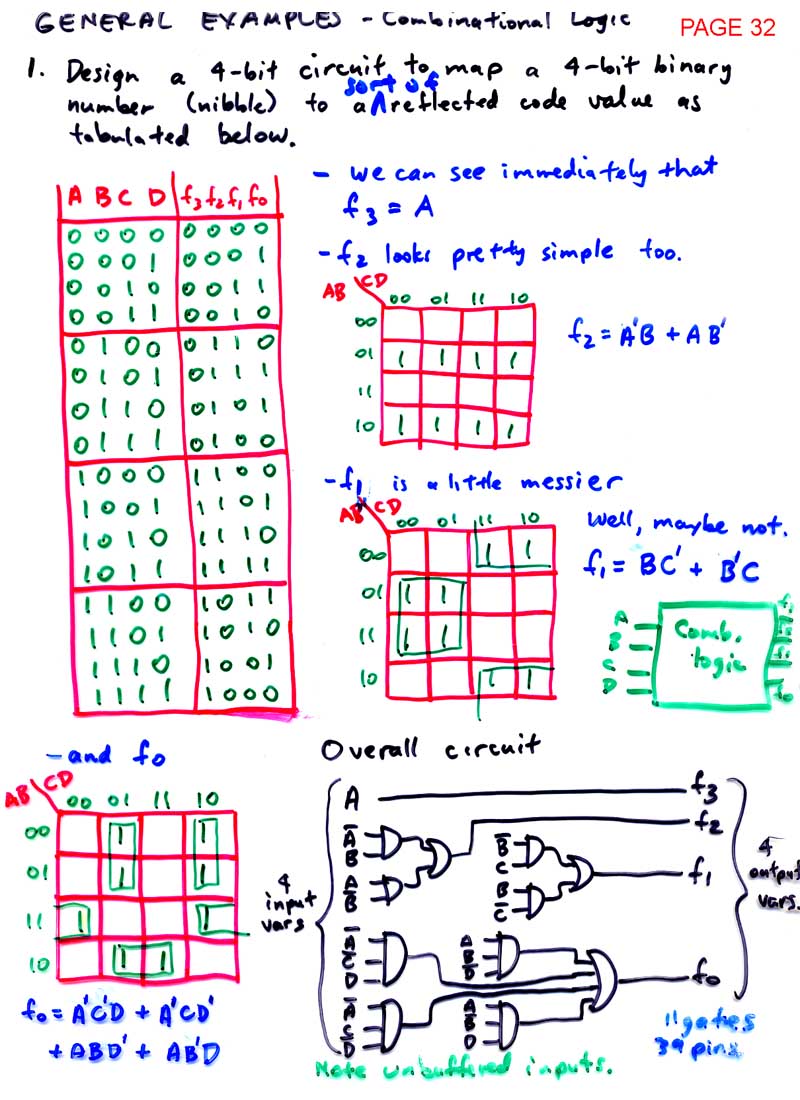 GENERAL EXAMPLES - Combinational Logic PAGE 32
1. Design a 4-bit circuit to map a 4-bit binary
number (nibble) to a sort of reflected code value as
tabulated below.
A B C D f3 f2 f1 f0
0 0 0 0 0 0 0 0
0 0 0 1 0 0 0 1
0 0 1 0 0 0 1 1
0 0 1 1 0 0 1 0
0 1 0 0 0 1 1 0
0 1 0 1 0 1 1 1
0 1 1 0 0 1 0 1
0 1 1 1 0 1 0 0
1 0 0 0 1 1 0 0
1 0 0 1 1 1 0 1
1 0 1 0 1 1 1 0
1 0 1 1 1 1 1 1
1 1 0 0 1 0 1 1
1 1 0 1 1 0 1 0
1 1 1 0 1 0 0 1
1 1 1 1 1 0 0 0
- we can see immediately that
f3 = A
- f2 looks pretty simple too.
AB CD
00 01 11 10
00
01 1 1 1 1
11
10 1 1 1 1
f2 = A'B + AB'
- f1 is a little messier
AB CD
00 01 11 10
00 1 1
01 1 1
11 1 1
10 1 1
Well, maybe not.
f1 = BC' + B'C
A
B
C
D
Comb.
logic
f3
f2
f1
f0
- and f0
AB CD
00 01 11 10
00 1 1
01 1 1
11 1 1
10 1 1
f0 = A'C'D + A'CD'
+ ABD' + AB'D
Overall circuit
4
input
vars
A f3
A̅
B
A
B̅
f2
B̅
C
B
C̅
f1
A̅
C̅
D
A̅
C
D̅
A
B
D̅
A
B̅
D
f0
4
output
vars.
11 gates
39 pins
Note unbuffered inputs.